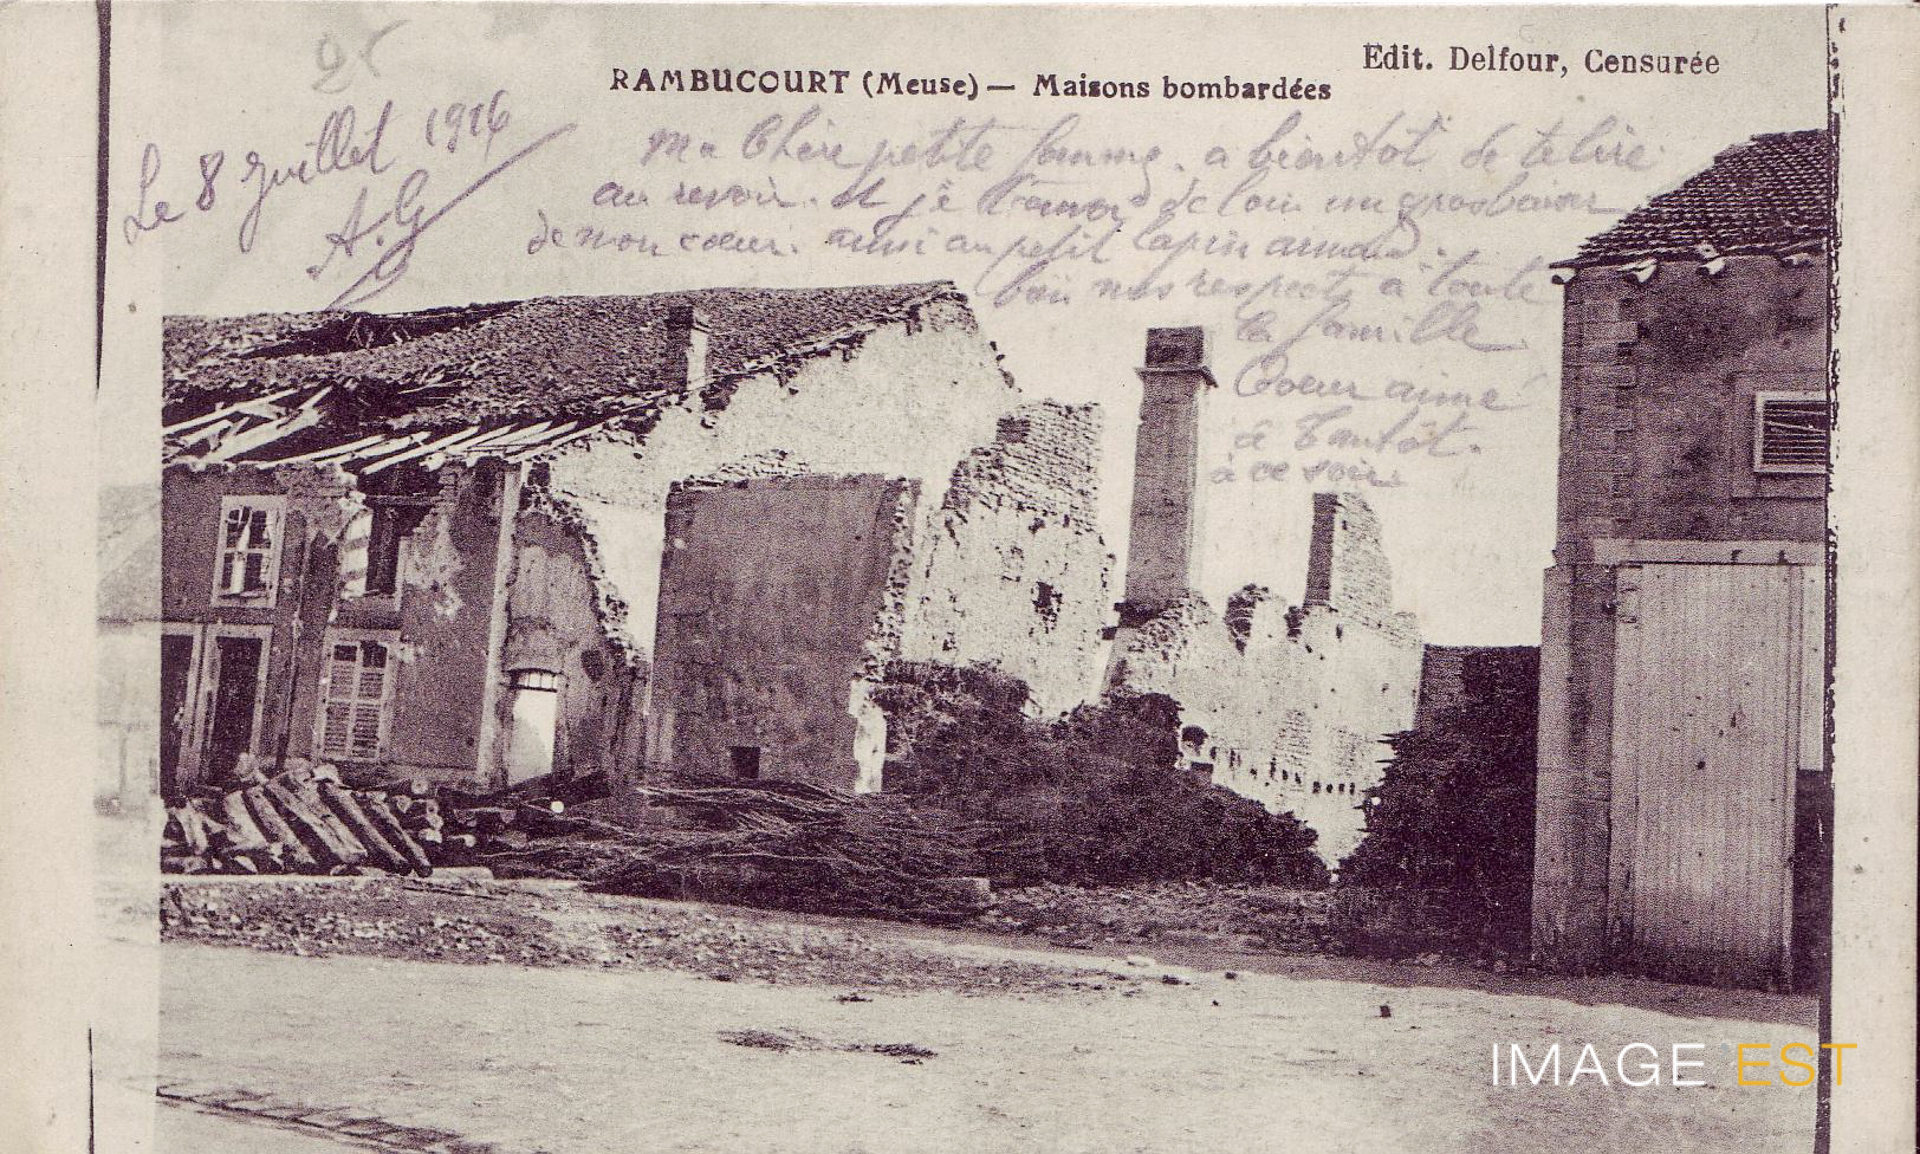 Edit. Delfour, Censurée
RAMBUCOURT (Meuse) — Maisons bombardées
Le 8 Juillet 1916
A.G
Ma Chère petite femme. a bientôt de te lire
au revoir. et je t'envoi de loin un gros baiser
de mon coeur. aussi au petit lapin armand.
bon nos respects à toute
la famille
Coeur aimé
à Tantôt.
à ce soir.
IMAGE EST